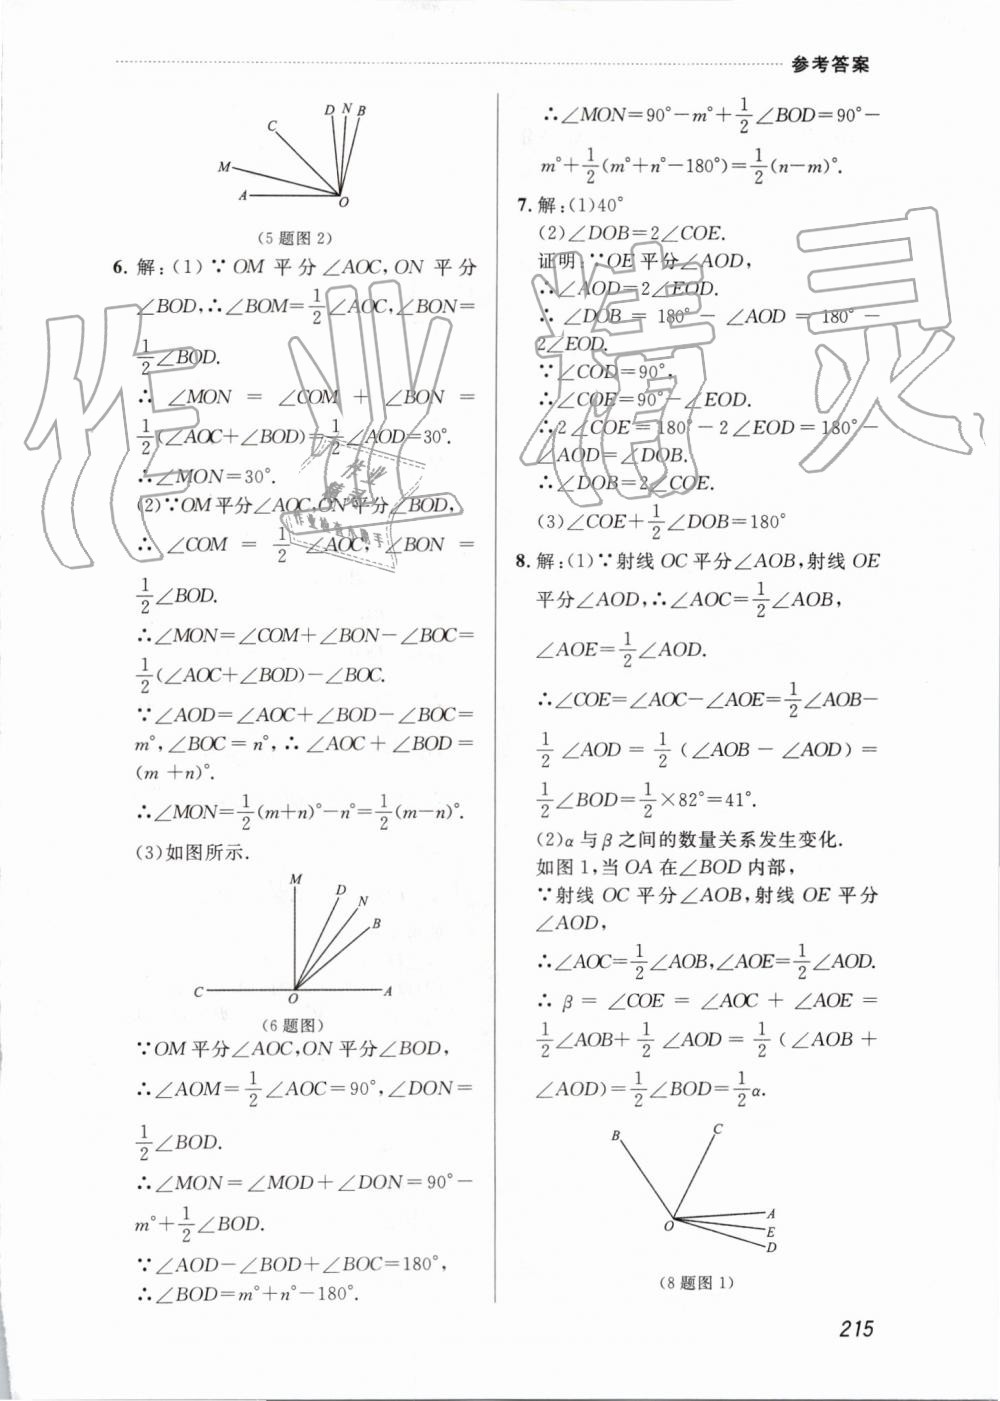 参考答案
D N B
C
M
A
O
(5题图2)
6. 解:(1)∵OM平分∠AOC,ON平分
∠BOD,∴∠BOM=1/2∠AOC,∠BON=
1/2∠BOD.
∴∠MON=∠COM+∠BON=
1/2(∠AOC+∠BOD)=1/2∠AOD=30°.
∴∠MON=30°.
(2)∵OM平分∠AOC,ON平分∠BOD,
∴∠COM=1/2∠AOC,∠BON=
1/2∠BOD.
∴∠MON=∠COM+∠BON-∠BOC=
1/2(∠AOC+∠BOD)-∠BOC.
∵∠AOD=∠AOC+∠BOD-∠BOC=
m°,∠BOC=n°,∴∠AOC+∠BOD=
(m+n)°.
∴∠MON=1/2(m+n)°-n°=1/2(m-n)°.
(3)如图所示.
M
D
N
B
C
O
A
(6题图)
∵OM平分∠AOC,ON平分∠BOD,
∴∠AOM=1/2∠AOC=90°,∠DON=
1/2∠BOD.
∴∠MON=∠MOD+∠DON=90°-
m°+1/2∠BOD.
∵∠AOD-∠BOD+∠BOC=180°,
∴∠BOD=m°+n°-180°.
∴∠MON=90°-m°+1/2∠BOD=90°-
m°+1/2(m°+n°-180°)=1/2(n-m)°.
7. 解:(1)40°
(2)∠DOB=2∠COE.
证明:∵OE平分∠AOD,
∴∠AOD=2∠EOD.
∴∠DOB=180°-∠AOD=180°-
2∠EOD.
∵∠COD=90°,
∴∠COE=90°-∠EOD.
∴2∠COE=180°-2∠EOD=180°-
∠AOD=∠DOB.
∴∠DOB=2∠COE.
(3)∠COE+1/2∠DOB=180°
8. 解:(1)∵射线OC平分∠AOB,射线OE
平分∠AOD,∴∠AOC=1/2∠AOB,
∠AOE=1/2∠AOD.
∴∠COE=∠AOC-∠AOE=1/2∠AOB-
1/2∠AOD=1/2(∠AOB-∠AOD)=
1/2∠BOD=1/2×82°=41°.
(2)α与β之间的数量关系发生变化.
如图1,当OA在∠BOD内部,
∵射线OC平分∠AOB,射线OE平分
∠AOD,
∴∠AOC=1/2∠AOB,∠AOE=1/2∠AOD.
∴β=∠COE=∠AOC+∠AOE=
1/2∠AOB+1/2∠AOD=1/2(∠AOB+
∠AOD)=1/2∠BOD=1/2α.
B
C
O
A
E
D
(8题图1)
215
作业精灵
作业
精灵